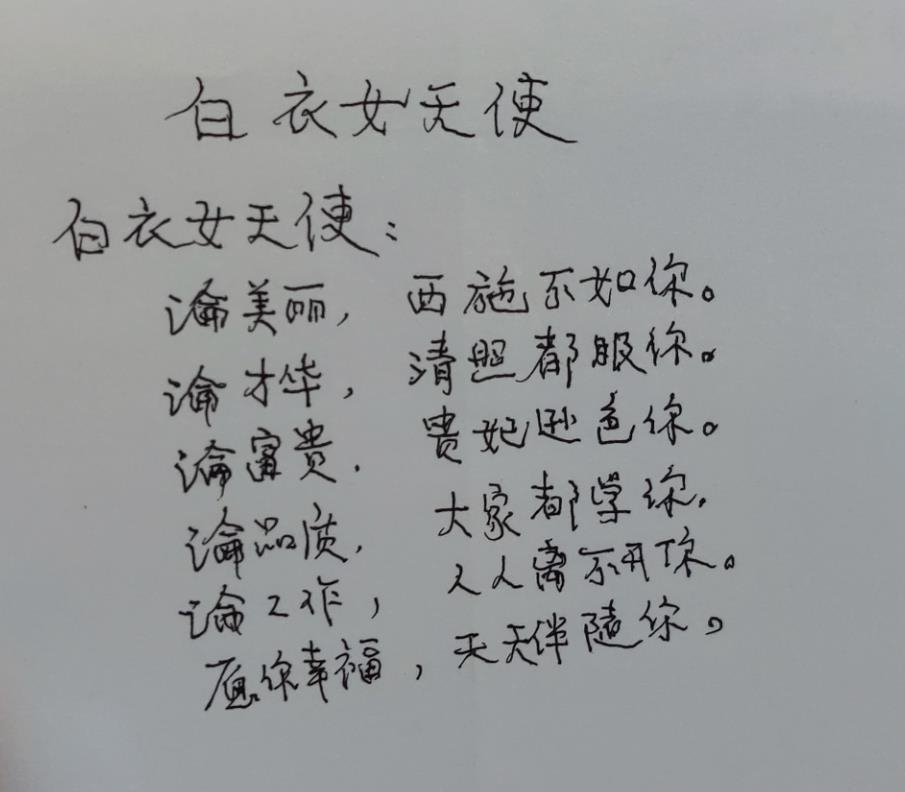 白衣女天使
白衣女天使：
論美丽，西施不如你。
論才华，清照都服你。
論富贵，贵妃逊色你。
論品质，大家都学你。
論工作，人人离不开你。
愿你幸福，天天伴随你。